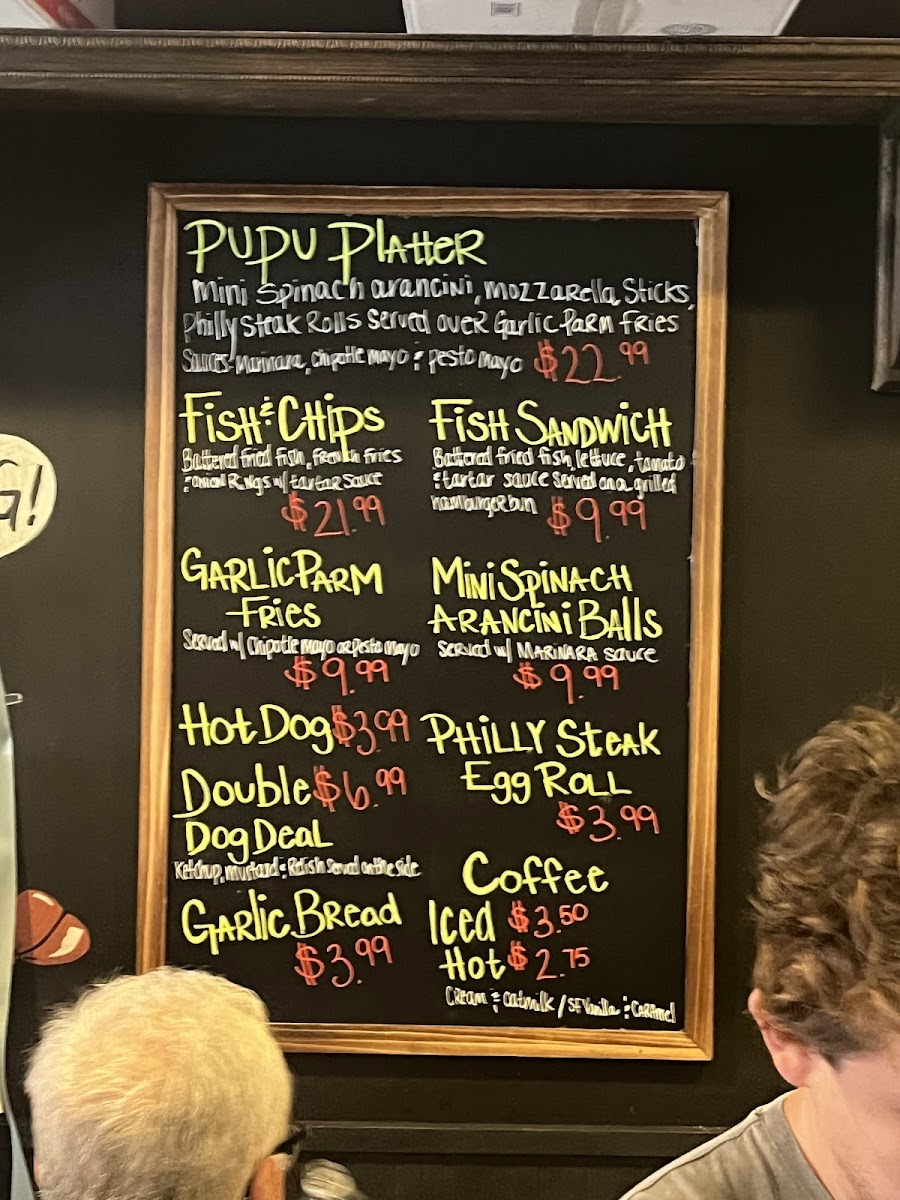 PUPU PlatteR
Mini Spinach arancini, Mozzarella Sticks,
Philly Steak Rolls Served over Garlic Parm fries
Sauces-Marinara, chipotle mayo & pesto mayo $22.99
Fish & Chips
Battered fried fish, french fries
& onion Rings w/ tartar sauce
$21.99
Fish Sandwich
Battered fried fish, lettuce, tomato
& tartar sauce served on a grilled
hamburger bun $9.99
Garlic Parm
Fries
Served w/ Chipotle mayo or pesto mayo
$9.99
Mini Spinach
Arancini Balls
served w/ MARINARA sauce
$9.99
Hot Dog $3.99
Double $6.99
Dog Deal
Ketchup, mustard & Relish Served on the side
Garlic Bread
$3.99
Philly Steak
Egg Roll
$3.99
Coffee
Iced $3.50
Hot $2.75
Cream & oatmilk / SF Vanilla & CARAmel
G!